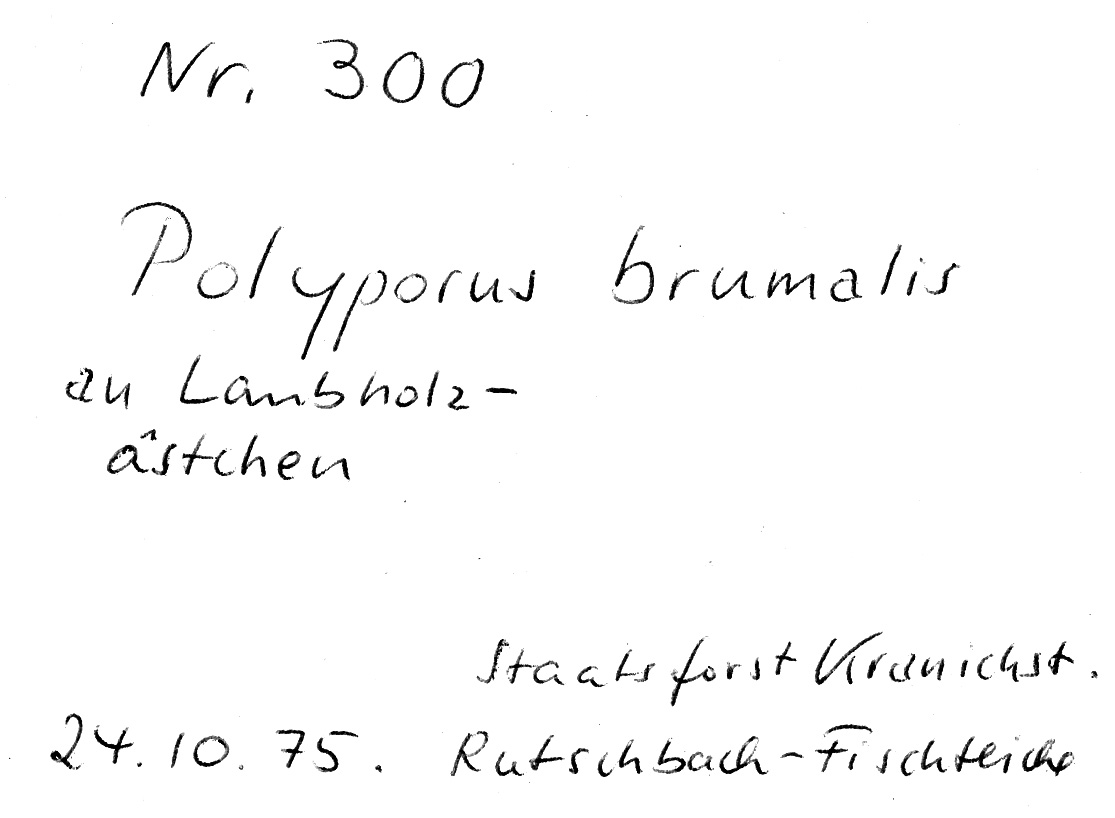 Nr. 300
Polyporus brumalis
an Laubholz-
ästchen
Staatsforst Kranichst.
24.10.75. Rutschbach-Fischteiche